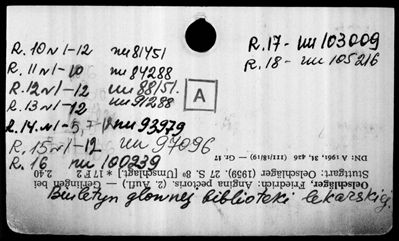 R. 10 N 1-12 nu 81451
R. 11 N 1-10 nu 84288
R. 12 N 1-12 nu 88151.
R. 13 N 1-12 nu 91288
A
R. 14. N 1-5, 7-12 nu 93979
R. 15 N 1-12 nu 97096
R. 16 nu 100239
R. 17 - nu 103009
R. 18 - nu 105216
Biuletyn głownej biblioteki lekarskiej.
Oelschläger, Friedrich: Angina pectoris. (2. Aufl.) Gerlingen bei
Stuttgart: Oelschläger (1959). 27 S. 8° [Umschlagt.] * 17 F 2 2.40
DNB A 1961, 31, 426 (III/18/19) — Gr. 17